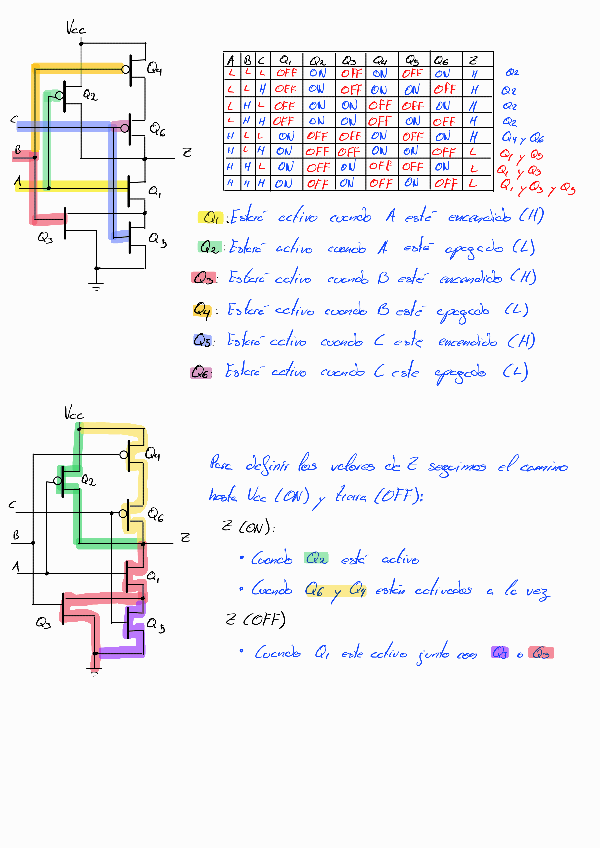 Vcc
Q4
Q2
C
Q6
B
Z
A
Q1
Q3
Q5
A B C Q1 Q2 Q3 Q4 Q5 Q6 Z
L L L OFF ON OFF ON OFF ON H Q2
L L H OFF ON OFF ON ON OFF H Q2
L H L OFF ON ON OFF OFF ON H Q2
L H H OFF ON ON OFF ON OFF H Q2
H L L ON OFF OFF ON OFF ON H Q4 y Q6
H L H ON OFF OFF ON ON OFF L Q1 y Q5
H H L ON OFF ON OFF OFF ON L Q1 y Q3
H H H ON OFF ON OFF ON OFF L Q1 y Q3 y Q5
Q1: Estará activo cuando A esté encendido (H)
Q2: Estará activo cuando A esté apagado (L)
Q3: Estará activo cuando B esté encendido (H)
Q4: Estará activo cuando B esté apagado (L)
Q5: Estará activo cuando C este encendido (H)
Q6: Estará activo cuando C este apagado (L)
Vcc
Q4
Q2
C
Q6
B
Z
A
Q1
Q3
Q5
Para definir los valores de Z seguimos el camino
hasta Vcc (ON) y tierra (OFF):
Z (ON):
• Cuando Q2 está activo
• Cuando Q6 y Q4 están activados a la vez
Z (OFF)
• Cuando Q1 este activo junto con Q5 o Q3